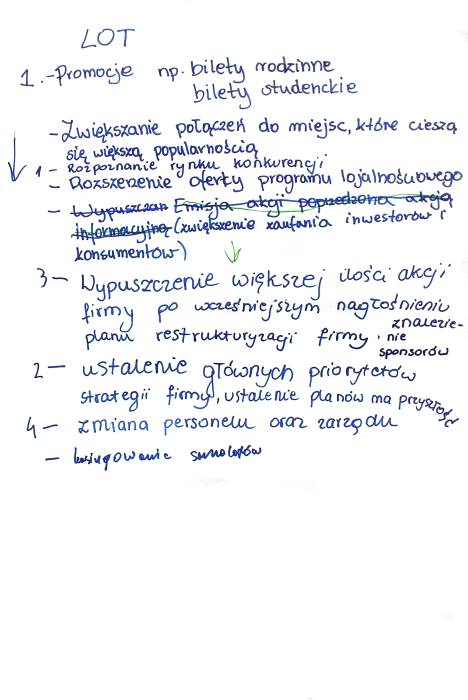 LOT
1. - Promocje np. bilety rodzinne
bilety studenckie
- Zwiększanie połączeń do miejsc, które cieszą
się większą popularnością
1 - Rozpoznanie rynku konkurencji
- Rozszerzenie oferty programu lojalnościowego
- Wypuszczan Emisja akcji poprzedzona akcją
informacyjną (zwiększenie zaufania inwestorów i
konsumentów)
3 - Wypuszczenie większej ilości akcji
firmy po wcześniejszym nagłośnieniu
planu restrukturyzacji firmy. znalezie-
nie
sponsorów
2 - ustalenie głównych priorytetów
strategii firmy, ustalenie planów na przyszłość
4 - zmiana personelu oraz zarządu
- leasingowanie samolotów